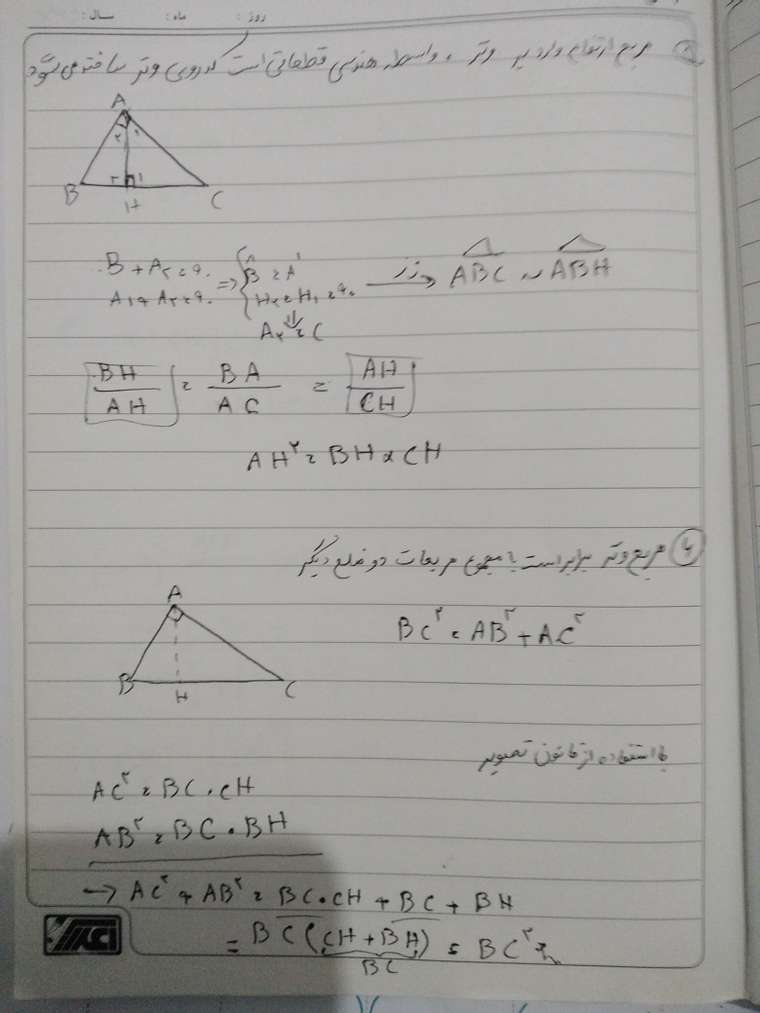 روز : ماه : سال :
مربع ارتفاع وارد بر وتر ، واسطه هندسی قطعاتی است که روی وتر ساخته می شود
A
۲ ۱
B ۲ ۱ C
H
B + A₂ = ۹۰ ⇒ { B = A₁ زز → ABC ~ ABH
A₁ + A₂ = ۹۰ H₂ = H₁ = ۹۰
A₂ = C
BH/AH = BA/AC = AH/CH
AH² = BH × CH
مربع وتر برابر است با مجموع مربعات دو ضلع دیگر
A
BC² = AB² + AC²
B H C
با استفاده از قانون تصویر
AC² = BC . CH
AB² = BC . BH
→ AC² + AB² = BC . CH + BC + BH
= BC (CH + BH) = BC²
BC